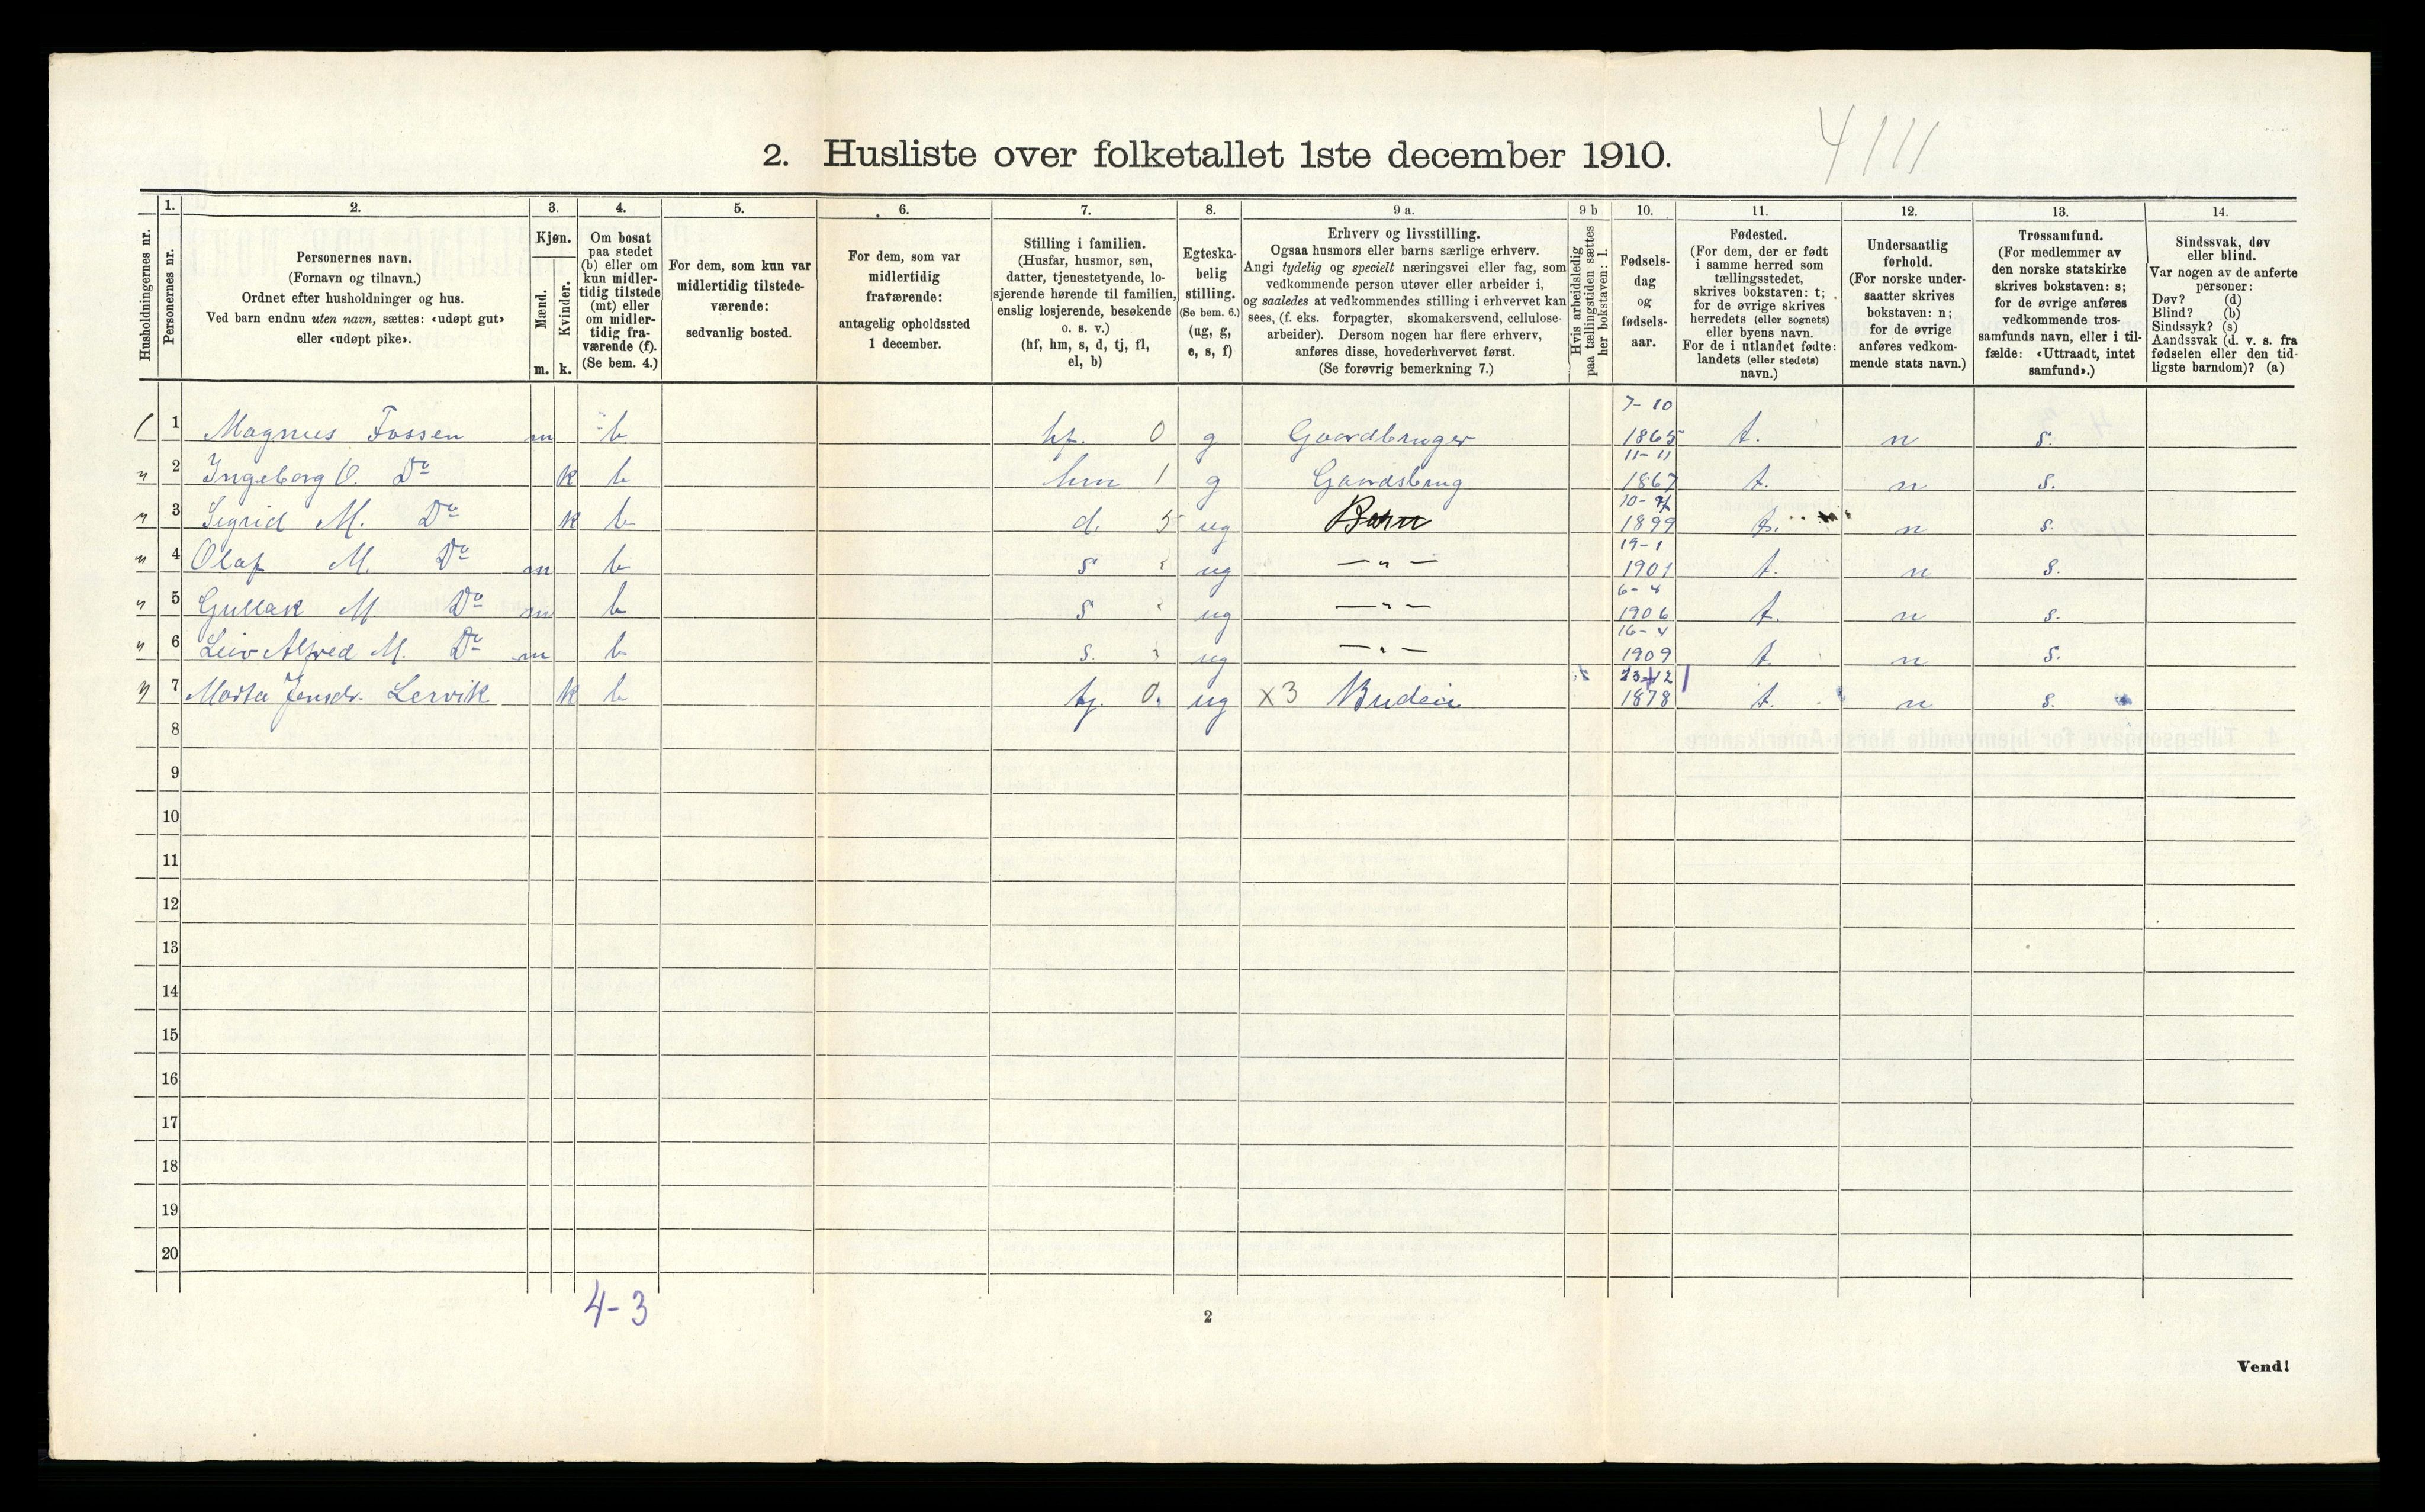 2. Husliste over folketallet 1ste december 1910.
4111
Husholdningernes nr.
1.
Personernes nr.
2.
Personernes navn.
(Fornavn og tilnavn.)
Ordnet efter husholdninger og hus.
Ved barn endnu uten navn, sættes: «udøpt gut»
eller «udøpt pike».
3.
Kjøn.
Mænd.
Kvinder.
m. k.
4.
Om bosat
paa stedet
(b) eller om
kun midler-
tidig tilstede
(mt) eller
om midler-
tidig fra-
værende (f).
(Se bem. 4.)
5.
For dem, som kun var
midlertidig tilstede-
værende:
sedvanlig bosted.
6.
For dem, som var
midlertidig
fraværende:
antagelig opholdssted
1 december.
7.
Stilling i familien.
(Husfar, husmor, søn,
datter, tjenestetyende, lo-
sjerende hørende til familien,
enslig losjerende, besøkende
o. s. v.)
(hf, hm, s, d, tj, fl,
el, b)
8.
Egteska-
belig
stilling.
(Se bem. 6.)
(ug, g,
e, s, f)
9 a.
Erhverv og livsstilling.
Ogsaa husmors eller barns særlige erhverv.
Angi tydelig og specielt næringsvei eller fag, som
vedkommende person utøver eller arbeider i,
og saaledes at vedkommendes stilling i erhvervet kan
sees, (f. eks. forpagter, skomakersvend, cellulose-
arbeider). Dersom nogen har flere erhverv,
anføres disse, hovederhvervet først.
(Se forøvrig bemerkning 7.)
9 b
Hvis arbeidsledig
paa tællingstiden sættes
her bokstaven: l.
10.
Fødsels-
dag
og
fødsels-
aar.
11.
Fødested.
(For dem, der er født
i samme herred som
tællingsstedet,
skrives bokstaven: t;
for de øvrige skrives
herredets (eller sognets)
eller byens navn.
For de i utlandet fødte:
landets (eller stedets)
navn.)
12.
Undersaatlig
forhold.
(For norske under-
saatter skrives
bokstaven: n;
for de øvrige
anføres vedkom-
mende stats navn.)
13.
Trossamfund.
(For medlemmer av
den norske statskirke
skrives bokstaven: s;
for de øvrige anføres
vedkommende tros-
samfunds navn, eller i til-
fælde: «Uttraadt, intet
samfund».)
14.
Sindssvak, døv
eller blind.
Var nogen av de anførte
personer:
Døv? (d)
Blind? (b)
Sindssyk? (s)
Aandssvak (d. v. s. fra
fødselen eller den tid-
ligste barndom)? (a)
1 Magnus Fossen m b hf. 0 g Gaardbruger 7-10 1865 t. n s.
2 Ingeborg O. Do k b hm 1 g Gaardsbrug 11-11 1867 t. n s.
3 Sigrid M. Do k b d. 5 ug Barn 1899 t. n s.
4 Olaf M. Do m b s ug —"— 19-1 1901 t. n s.
5 Gullak M. Do m b s ug —"— 6-4 1906 t. n s.
6 Leiv Alfred M. Do m b s. ug —"— 16-4 1909 t. n s.
7 Marta Jensdr. Lervik k b tj. 0 ug x3 Budeie 23-12 1878 t. n s.
8
9
10
11
12
13
14
15
16
17
18
19
20
4-3
2
Vend!